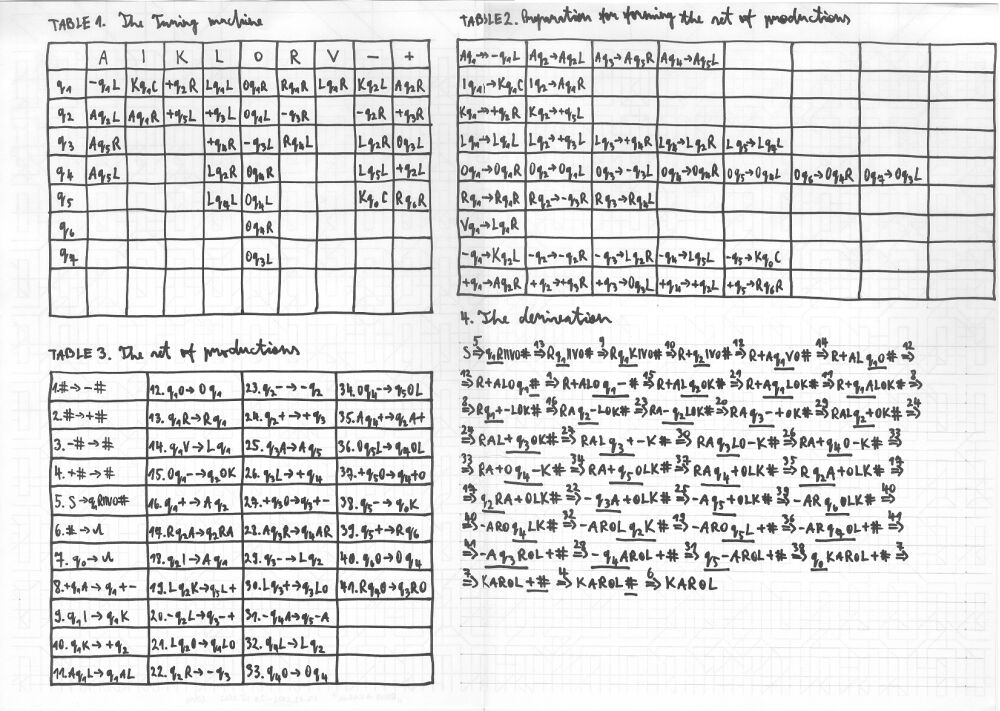 TABLE 1. The Turing machine
A I K L O R V − +
q1 −q1L Kq1C +q2R Lq1L Oq1R Rq1R Lq1R Kq2L Aq2R
q2 Aq2L Aq1R +q5L +q3L Oq1L −q3R −q2R +q3R
q3 Aq5R +q4R −q3L Rq4L Lq2R Oq3L
q4 Aq5L Lq2R Oq4R Lq5L +q2L
q5 Lq4L Oq4L Kq0C Rq6R
q6 Oq4R
q7 Oq3L
TABLE 2. Preparation for forming the set of productions
Aq1→−q1L Aq2→Aq2L Aq3→Aq5R Aq4→Aq5L
Iq1→Kq1C Iq2→Aq1R
Kq1→+q2R Kq2→+q5L
Lq1→Lq1L Lq2→+q3L Lq3→+q4R Lq4→Lq2R Lq5→Lq4L
Oq1→Oq1R Oq2→Oq1L Oq3→−q3L Oq4→Oq4R Oq5→Oq4L Oq6→Oq4R Oq7→Oq3L
Rq1→Rq1R Rq2→−q3R Rq3→Rq4L
Vq1→Lq1R
−q1→Kq2L −q2→−q2R −q3→Lq2R −q4→Lq5L −q5→Kq0C
+q1→Aq2R +q2→+q3R +q3→Oq3L +q4→+q2L +q5→Rq6R
TABLE 3. The set of productions
1.#→−# 12.q1O→Oq1 23.q2−→−q2 34.Oq4−→q5OL
2.#→+# 13.q1R→Rq1 24.q2+→+q3 35.Aq4+→q2A+
3.−#→# 14.q1V→Lq1 25.q3A→Aq5 36.Oq5L→q4OL
4.+#→# 15.Oq1−→q2OK 26.q3L→+q4 37.+q5O→q4+O
5.S→q1RIIVO# 16.q1+→Aq2 27.+q3O→q3+− 38.q5−→q0K
6.#→Λ 17.Rq2A→q2RA 28.Aq3R→q4AR 39.q5+→Rq6
7.q0→Λ 18.q2I→Aq1 29.q3−→Lq2 40.q6O→Oq4
8.+q1A→q1+− 19.Lq2K→q5L+ 30.Lq3+→q3LO 41.Rq4O→q3RO
9.q1I→q1K 20.−q2L→q3−+ 31.−q4A→q5−A
10.q1K→+q2 21.Lq2O→q1LO 32.q4L→Lq2
11.Aq1L→q1AL 22.q2R→−q3 33.q4O→Oq4
4. The derivation
S ⇒5 q1RIIVO# ⇒13 Rq1IIVO# ⇒9 Rq1KIVO# ⇒10 R+q2IVO# ⇒18 R+Aq1VO# ⇒14 R+ALq1O# ⇒12
⇒12 R+ALOq1# ⇒1 R+ALOq1−# ⇒15 R+ALq2OK# ⇒21 R+Aq1LOK# ⇒11 R+q1ALOK# ⇒8
⇒8 Rq1+−LOK# ⇒16 RAq2−LOK# ⇒23 RA−q2LOK# ⇒20 RAq3−+OK# ⇒29 RALq2+OK# ⇒24
⇒24 RAL+q3OK# ⇒27 RALq3+−K# ⇒30 RAq3LO−K# ⇒26 RA+q4O−K# ⇒33
⇒33 RA+Oq4−K# ⇒34 RA+q5OLK# ⇒37 RAq4+OLK# ⇒35 Rq2A+OLK# ⇒17
⇒17 q2RA+OLK# ⇒22 −q3A+OLK# ⇒25 −Aq5+OLK# ⇒39 −ARq6OLK# ⇒40
⇒40 −AROq4LK# ⇒32 −AROLq2K# ⇒19 −AROq5L+# ⇒36 −ARq4OL+# ⇒41
⇒41 −Aq3ROL+# ⇒28 −q4AROL+# ⇒31 q5−AROL+# ⇒38 q0KAROL+# ⇒7
⇒7 KAROL+# ⇒4 KAROL# ⇒6 KAROL